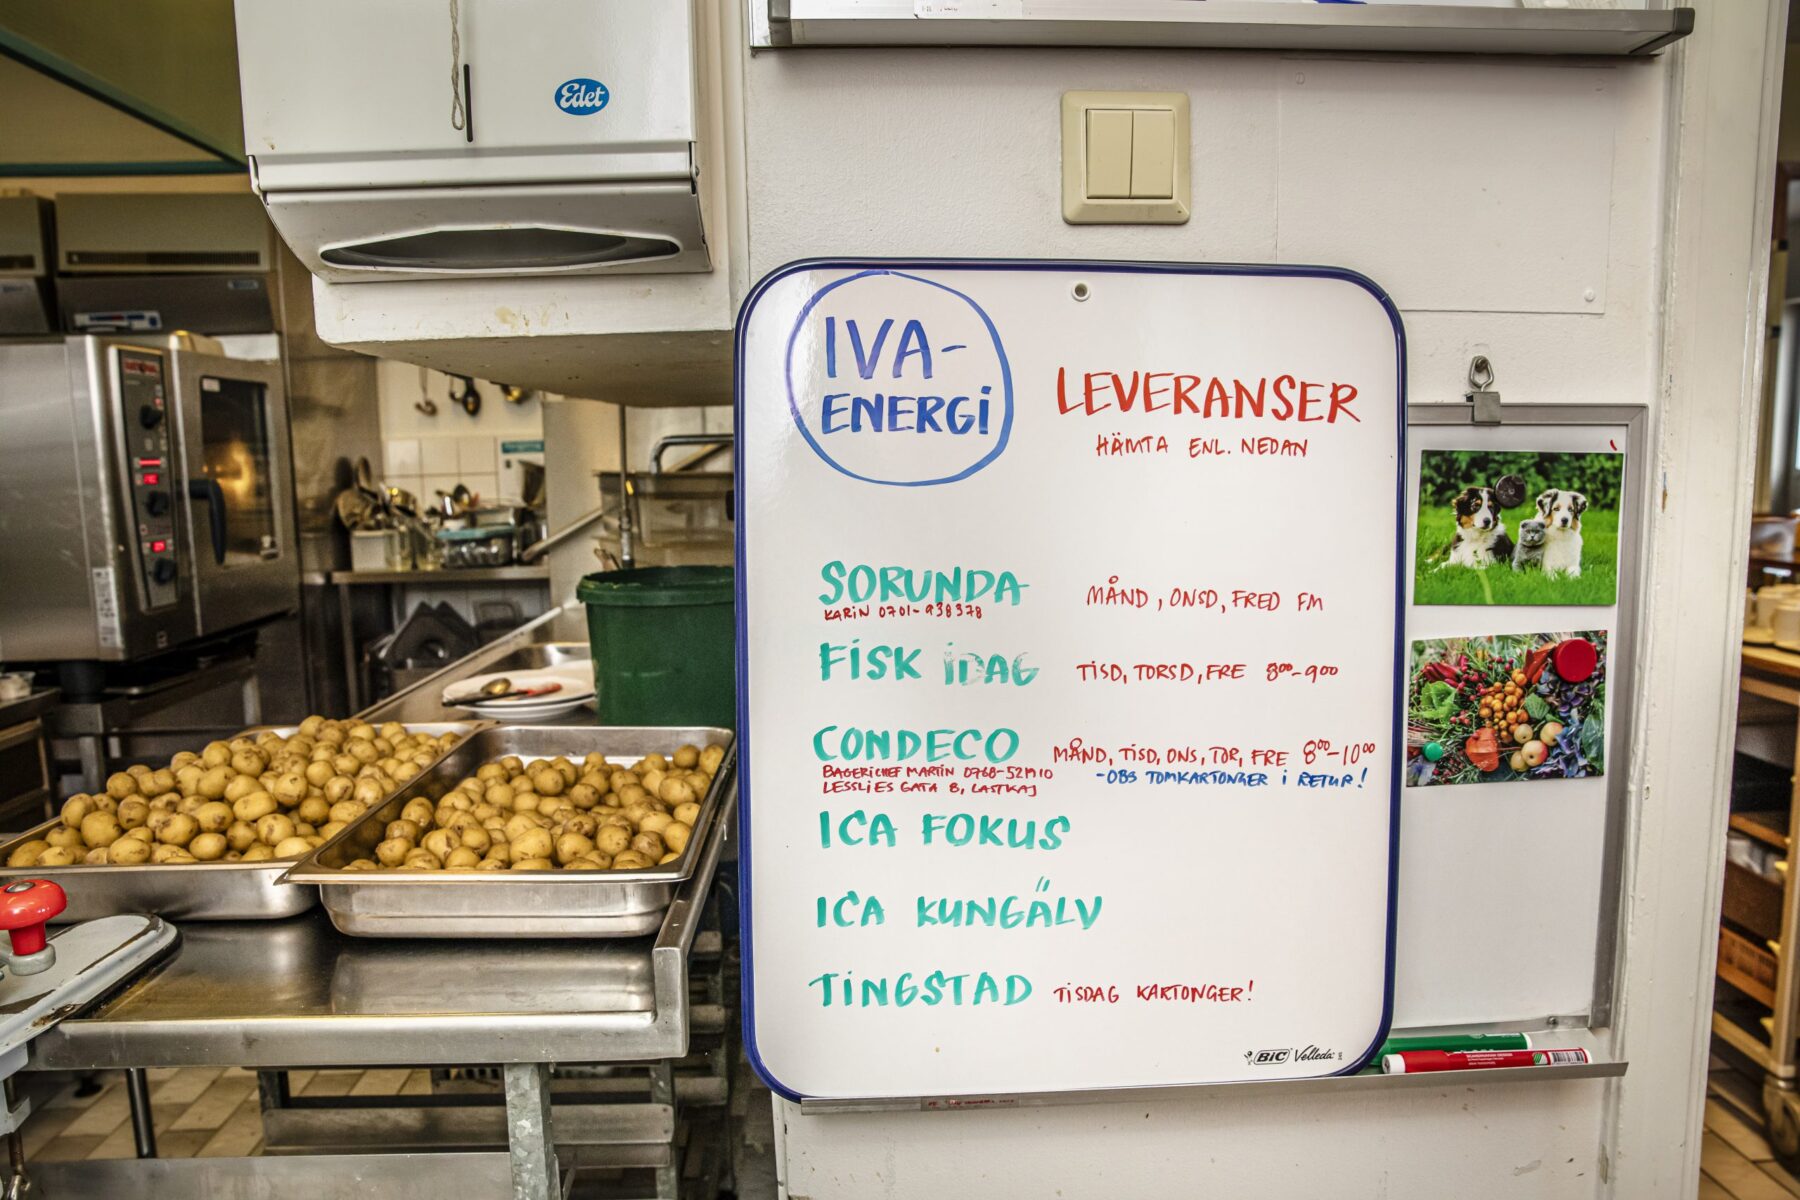 Edet
IVA-
ENERGI
LEVERANSER
HÄMTA ENL. NEDAN
SORUNDA MÅND, ONSD, FRED FM
KARIN 0701-938378
FISK IDAG TISD, TORSD, FRE 8⁰⁰-9⁰⁰
CONDECO MÅND, TISD, ONS, TOR, FRE 8⁰⁰-10⁰⁰
BAGERICHEF MARTIN -OBS TOMKARTONGER I RETUR!
LESSLIES GATA 8, LASTKAJ
ICA FOKUS
ICA KUNGÄLV
TINGSTAD TISDAG KARTONGER!
BIC Velleda